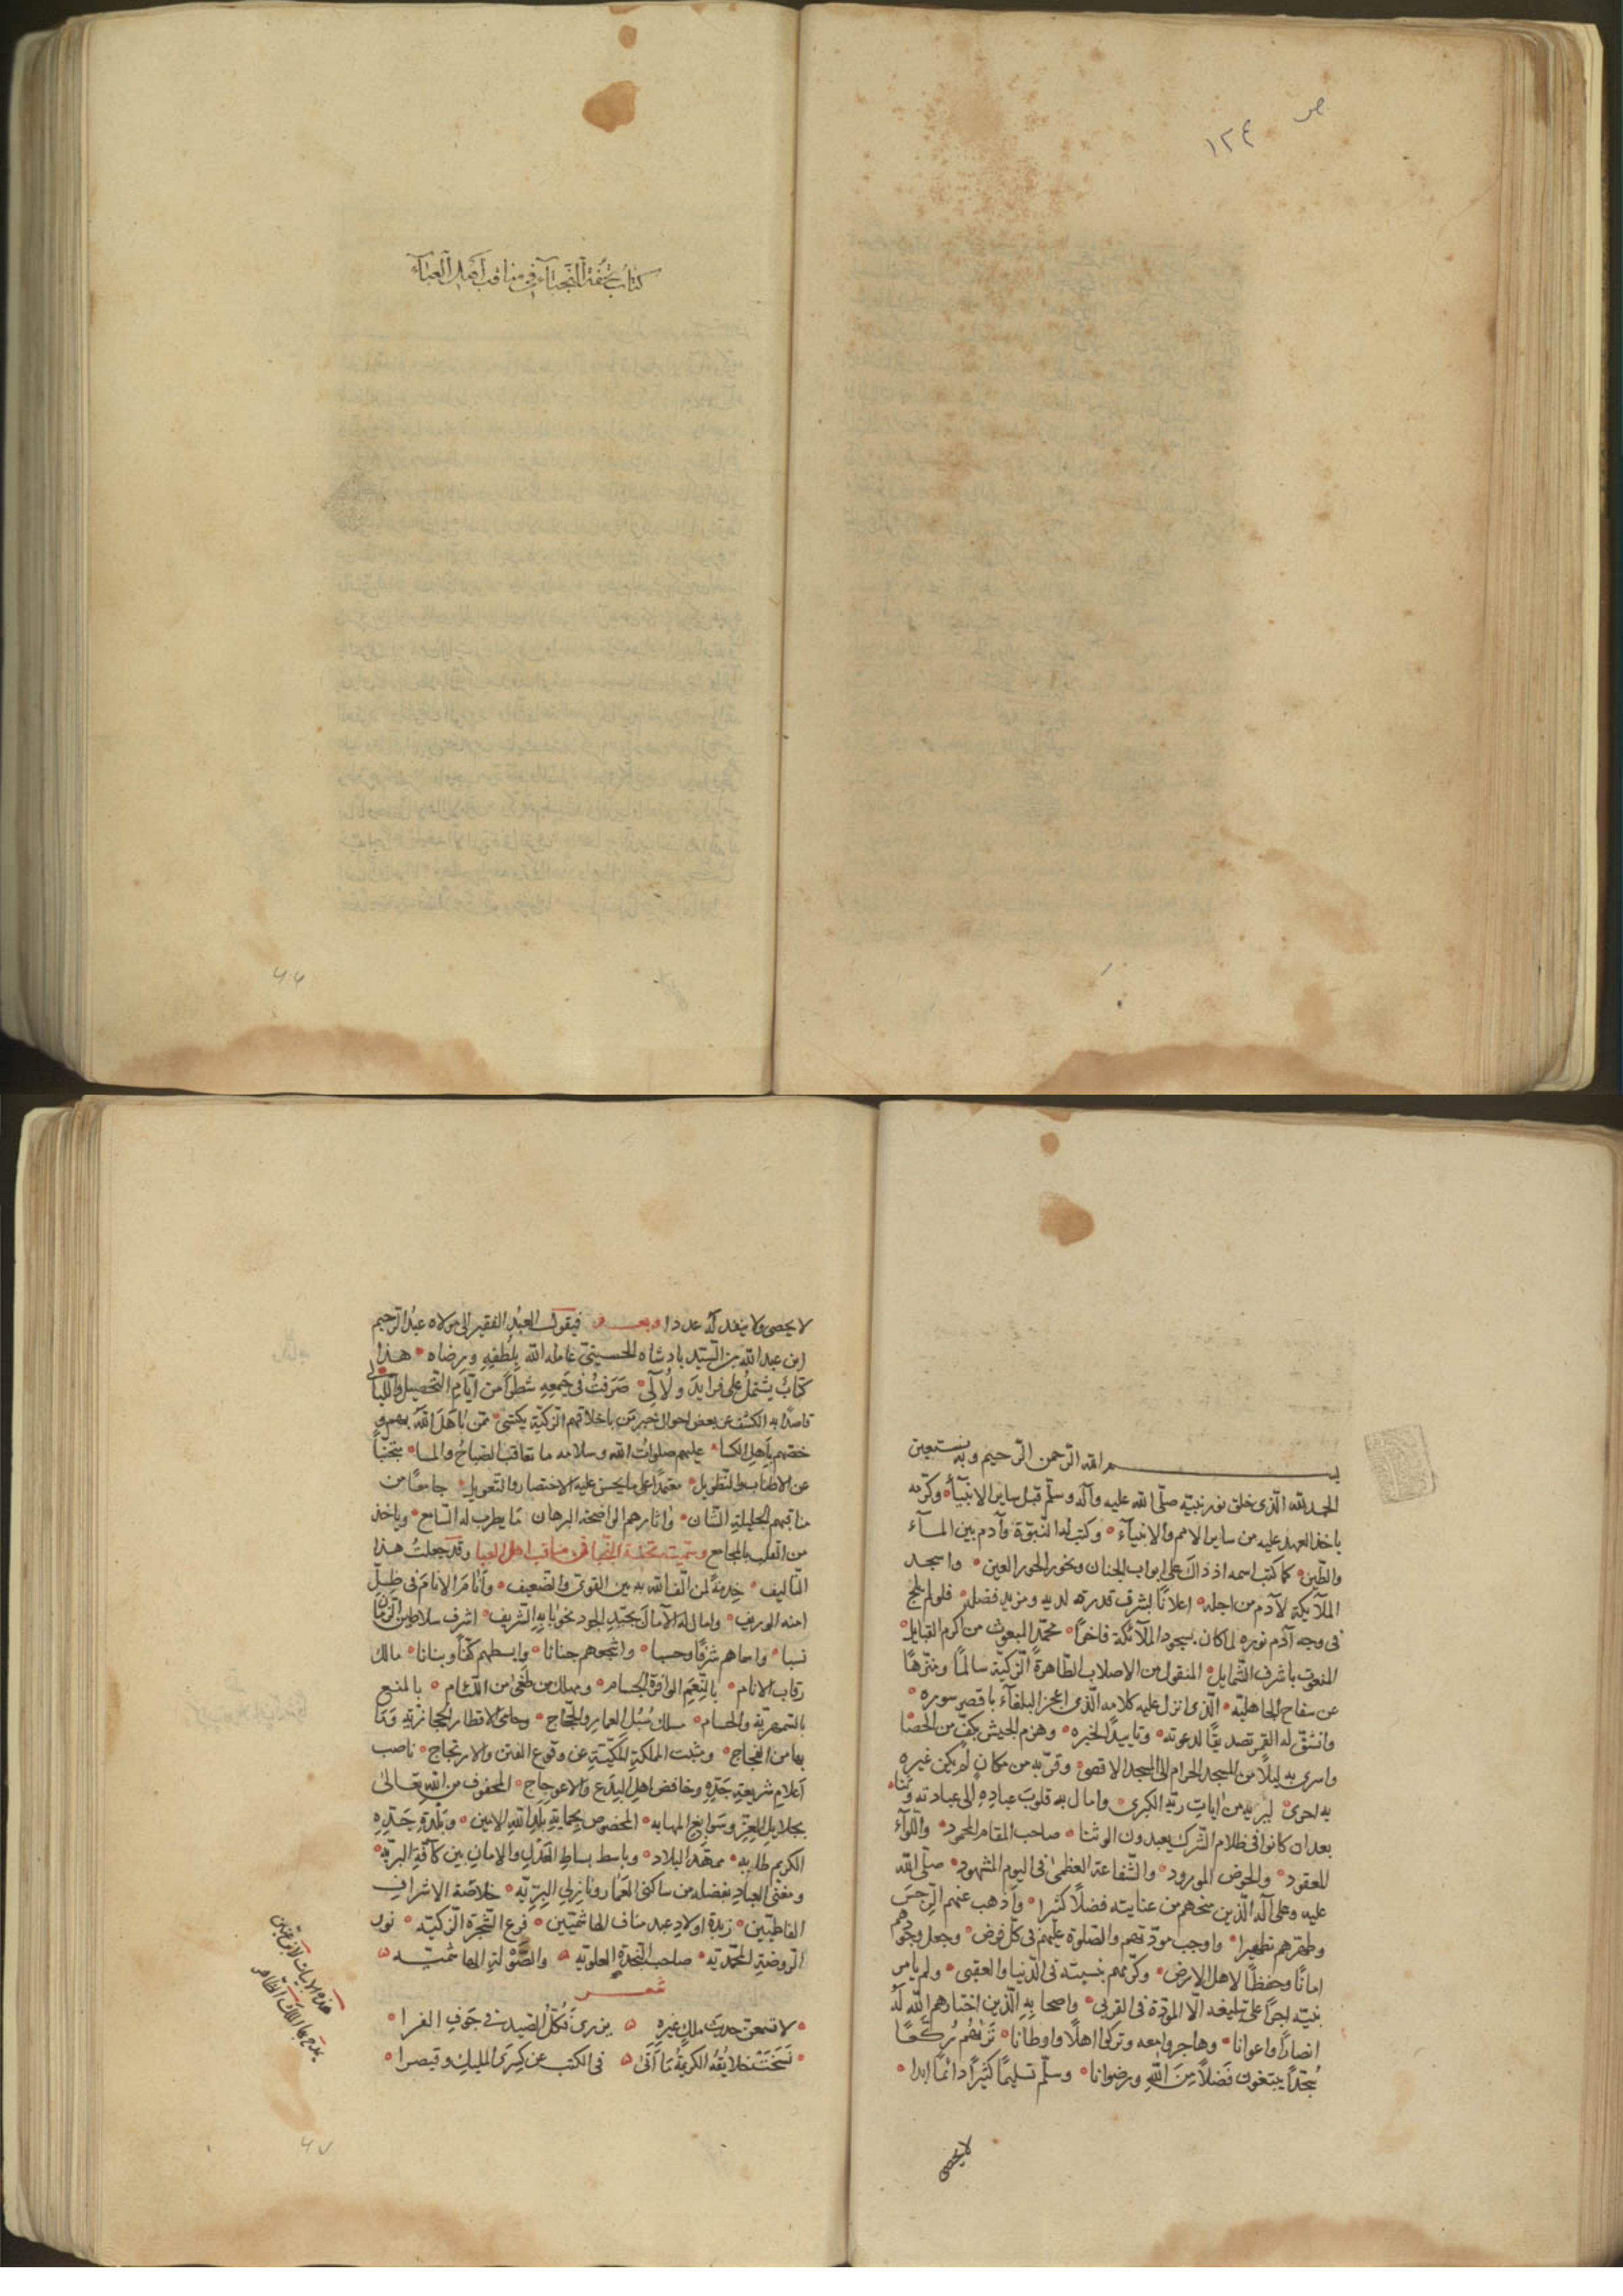 ص ١٢٤
كتاب تحفة النجباء في مناقب أهل العباء
٦٦
بسم الله الرحمن الرحيم وبه نستعين
الحمد لله الذى خلق نور نبيّه صلّى الله عليه وآله وسلّم قبل ساير الانبيآء وكرّمه
باخذ العهد عليه من ساير الامم والانبيآء وكتب له النّبوّة وآدم بين المآء
والطّين كما كتب اسمه اذ ذاك على ابواب الجنان ونحور الحور العين واسجد
الملآئكة لآدم من اجله اعلانًا بشرف قدره لديه ومزيد فضله فلولم يلج
فى وجه آدم نوره لما كان بسجود الملآئكة فاخرًا محمّد المبعوث من اكرم القبايل
المنعوت باشرف الشّمايل المنقول من الاصلاب الطّاهرة الزّكيّة سالمًا ومنزّهًا
عن سفاح الجاهليّة الّذى انزل عليه كلامه الّذى اعجز البلغآء باقصر سوره
وانشقّ له القمر تصديقًا لدعوته وتاييدًا لخبره وهزم الجيش بكفّ من الحصا
واسرى به ليلًا من المسجد الحرام الى المسجد الاقصى وقرّبه من مكان لم يكن غيره
به احرى ليريه من ايات ربّه الكبرى وامال به قلوب عباده الى عبادته
بعد ان كانوا فى ظلام الشّرك يعبدون الوثنا صاحب المقام المحمود واللّوآء
المعقود والحوض المورود والشّفاعة العظمى فى اليوم المشهود صلّى الله
عليه وعلى آله الّذين منحهم من عنايته فضلًا كثيرا وأذهب عنهم الرّجس
وطهّرهم تطهيرا واوجب مودّتهم والصّلوة عليهم فى كلّ فرض وجعل وجودهم
امانًا وحفظًا لاهل الارض وكرّمهم بنسبته فى الدّنيا والعقبى ولم يامر
نبيّه اجرًا على تبليغه الّا المودّة فى القربى واصحابه الّذين اختارهم الله له
انصارًا واعوانا وهاجروا معه وتركوا اهلًا واوطانا تريهم ركّعًا
سجّدًا يبتغون فضلًا من الله ورضوانا وسلّم تسليمًا كثيرًا دائمًا ابدا
لا يحصى
لا يحصى ولا ينفد له عددا وبعد فيقول العبد الفقير الى مولاه عبد الرّحيم
ابن عبد الله بن السّيّد بادشاه الحسينى عامله الله بلطفه ورضاه هذا
كتاب يشتمل على فرايد ولآلى صرفت فى جمعه شطرًا من ايّام التّحصيل واللّيالى
قاصدًا به الكشف عن بعض احوال خير من باخلاقهم الزّكيّة يكتسى ممّن باهل الله بهم و
خصّهم باهل الكسا عليهم صلوات الله وسلامه ما تعاقب الصّباح والمسا متجنّبًا
عن الاطناب والتّطويل معتمدًا على ما يحسن عليه الاختصار والتّعويل جامعًا من
مناقبهم الجليلة الشّان واثارهم الواضحة البرهان ما يطرب له السّامع وياخذ
من القلب بالمجامع وسمّيته تحفة النّجبا فى مناقب اهل العبا وقد جعلت هذا
التّأليف خدمةً لمن الّف الله به بين القوىّ والضّعيف وأنام الانام فى ظلّ
امنه الوريف وامال له الآمال بجيد الجود نحو بابه الشّريف اشرف سلاطين الزّمان
نسبا واسماهم شرفًا وحسبا واشجعهم جنانا وابسطهم كفًّا وبنانا مالك
رقاب الانام بالنّعم الوافرة الجسام ومهلك من طغى من اللّئام بالمنع
بالسّمهريّة والحسام مسلك سبل العمار والحجّاج وحامى الاقطار الحجازيّة وما
بها من الفجاج ومثبت المملكة المكّيّة عن وقوع الفتن والارتجاج ناصب
أعلام شريعة جدّه وخافض اهل البدع والاعوجاج المحفوف من الله تعالى
بجلابيل العزّ وسوابغ المهابه المخصوص بحماية بلد الله الامين وبلدة جدّه
الكريم طابه ممهّد البلاد وباسط بساط العدل والامان بين كآفّة البريّه
ومغنى العباد بفضله من ساكنى العمار ونازلى البرّيّه خلاصة الاشراف
الفاطميّين زبدة اولاد عبد مناف الهاشميّين فرع الشّجرة الزّكيّه نور
الرّوضة المحمّديّه صاحب النّجدة العلويّه والصّولة الهاشميّه
شعر
لا تسمعنّ حديث ملك غيره يروى فكلّ الصّيد فى جوف الفرا
نسخت خلايقه الكريمة ما أتى فى الكتب عن كسرى المليك وقيصرا
هذه الابيات لابن عنين
يمدح بها الملك الظّاهر
٦٧